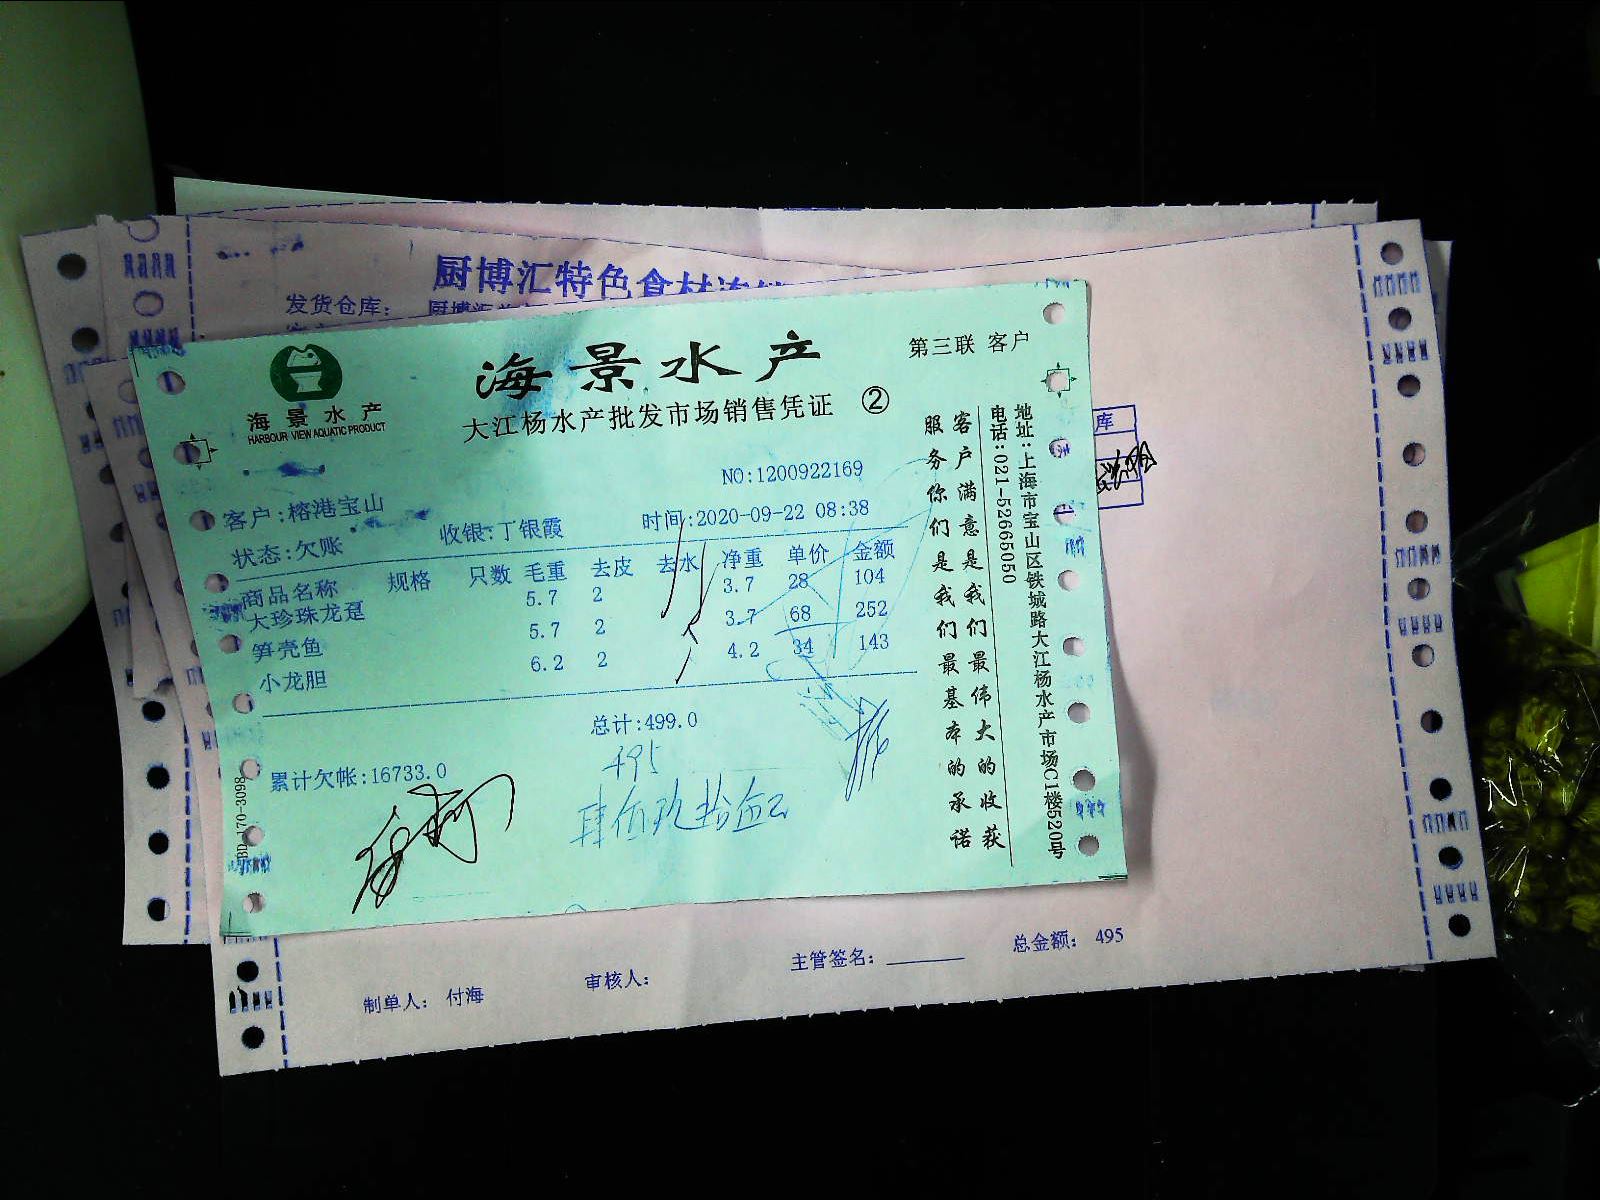 厨博汇特色食材连锁
发货仓库：
海景水产
HARBOUR VIEW AQUATIC PRODUCT
海景水产
第三联 客户
大江杨水产批发市场销售凭证 ②
NO:1200922169
客户:榕港宝山
收银:丁银霞
时间:2020-09-22 08:38
状态:欠账
商品名称 规格 只数 毛重 去皮 去水 净重 单价 金额
大珍珠龙趸 5.7 2 3.7 28 104
笋壳鱼 5.7 2 3.7 68 252
小龙胆 6.2 2 4.2 34 143
总计:499.0
495
累计欠帐:16733.0
肆佰玖拾伍元
客户满意是我们最伟大的收获
服务你们是我们最基本的承诺
地址:上海市宝山区铁城路大江杨水产市场C1楼520号
电话:021-52665050
BD-170-3098
库
制单人： 付海
审核人：
主管签名：
总金额： 495